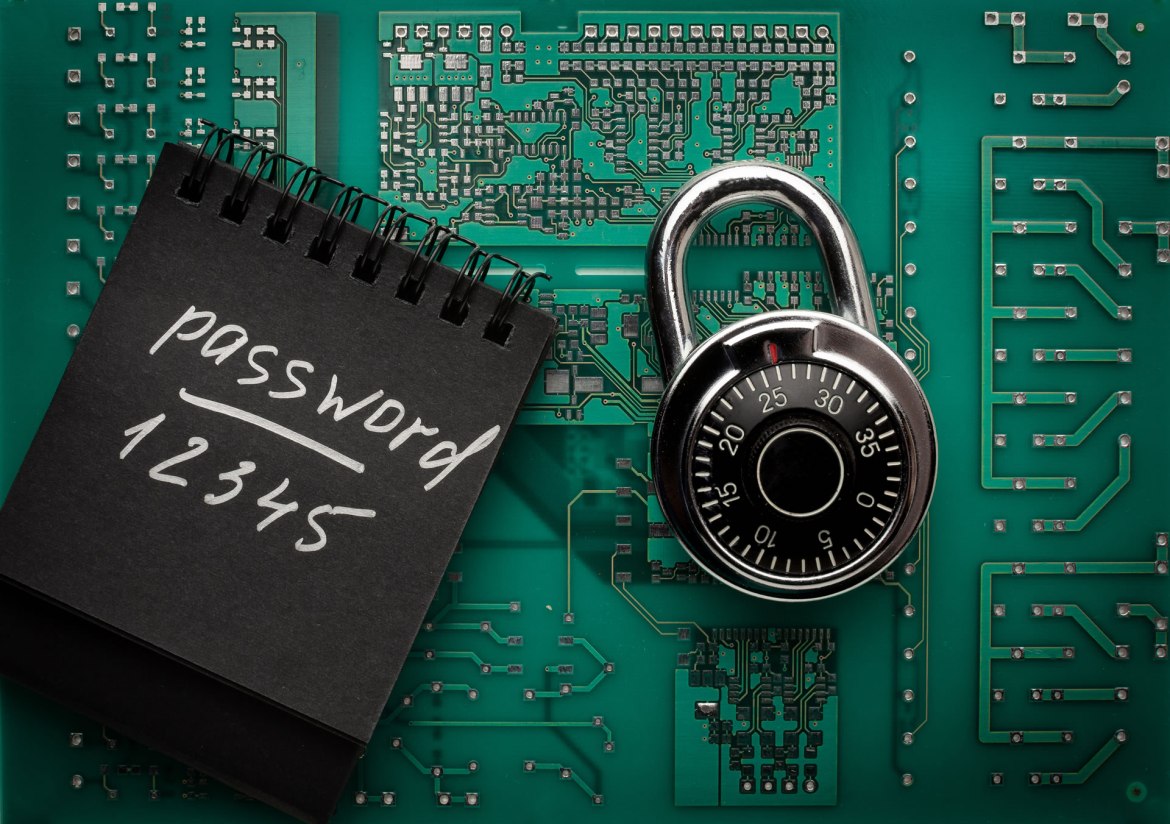 password
12345
25
30
20
35
15
0
10
5